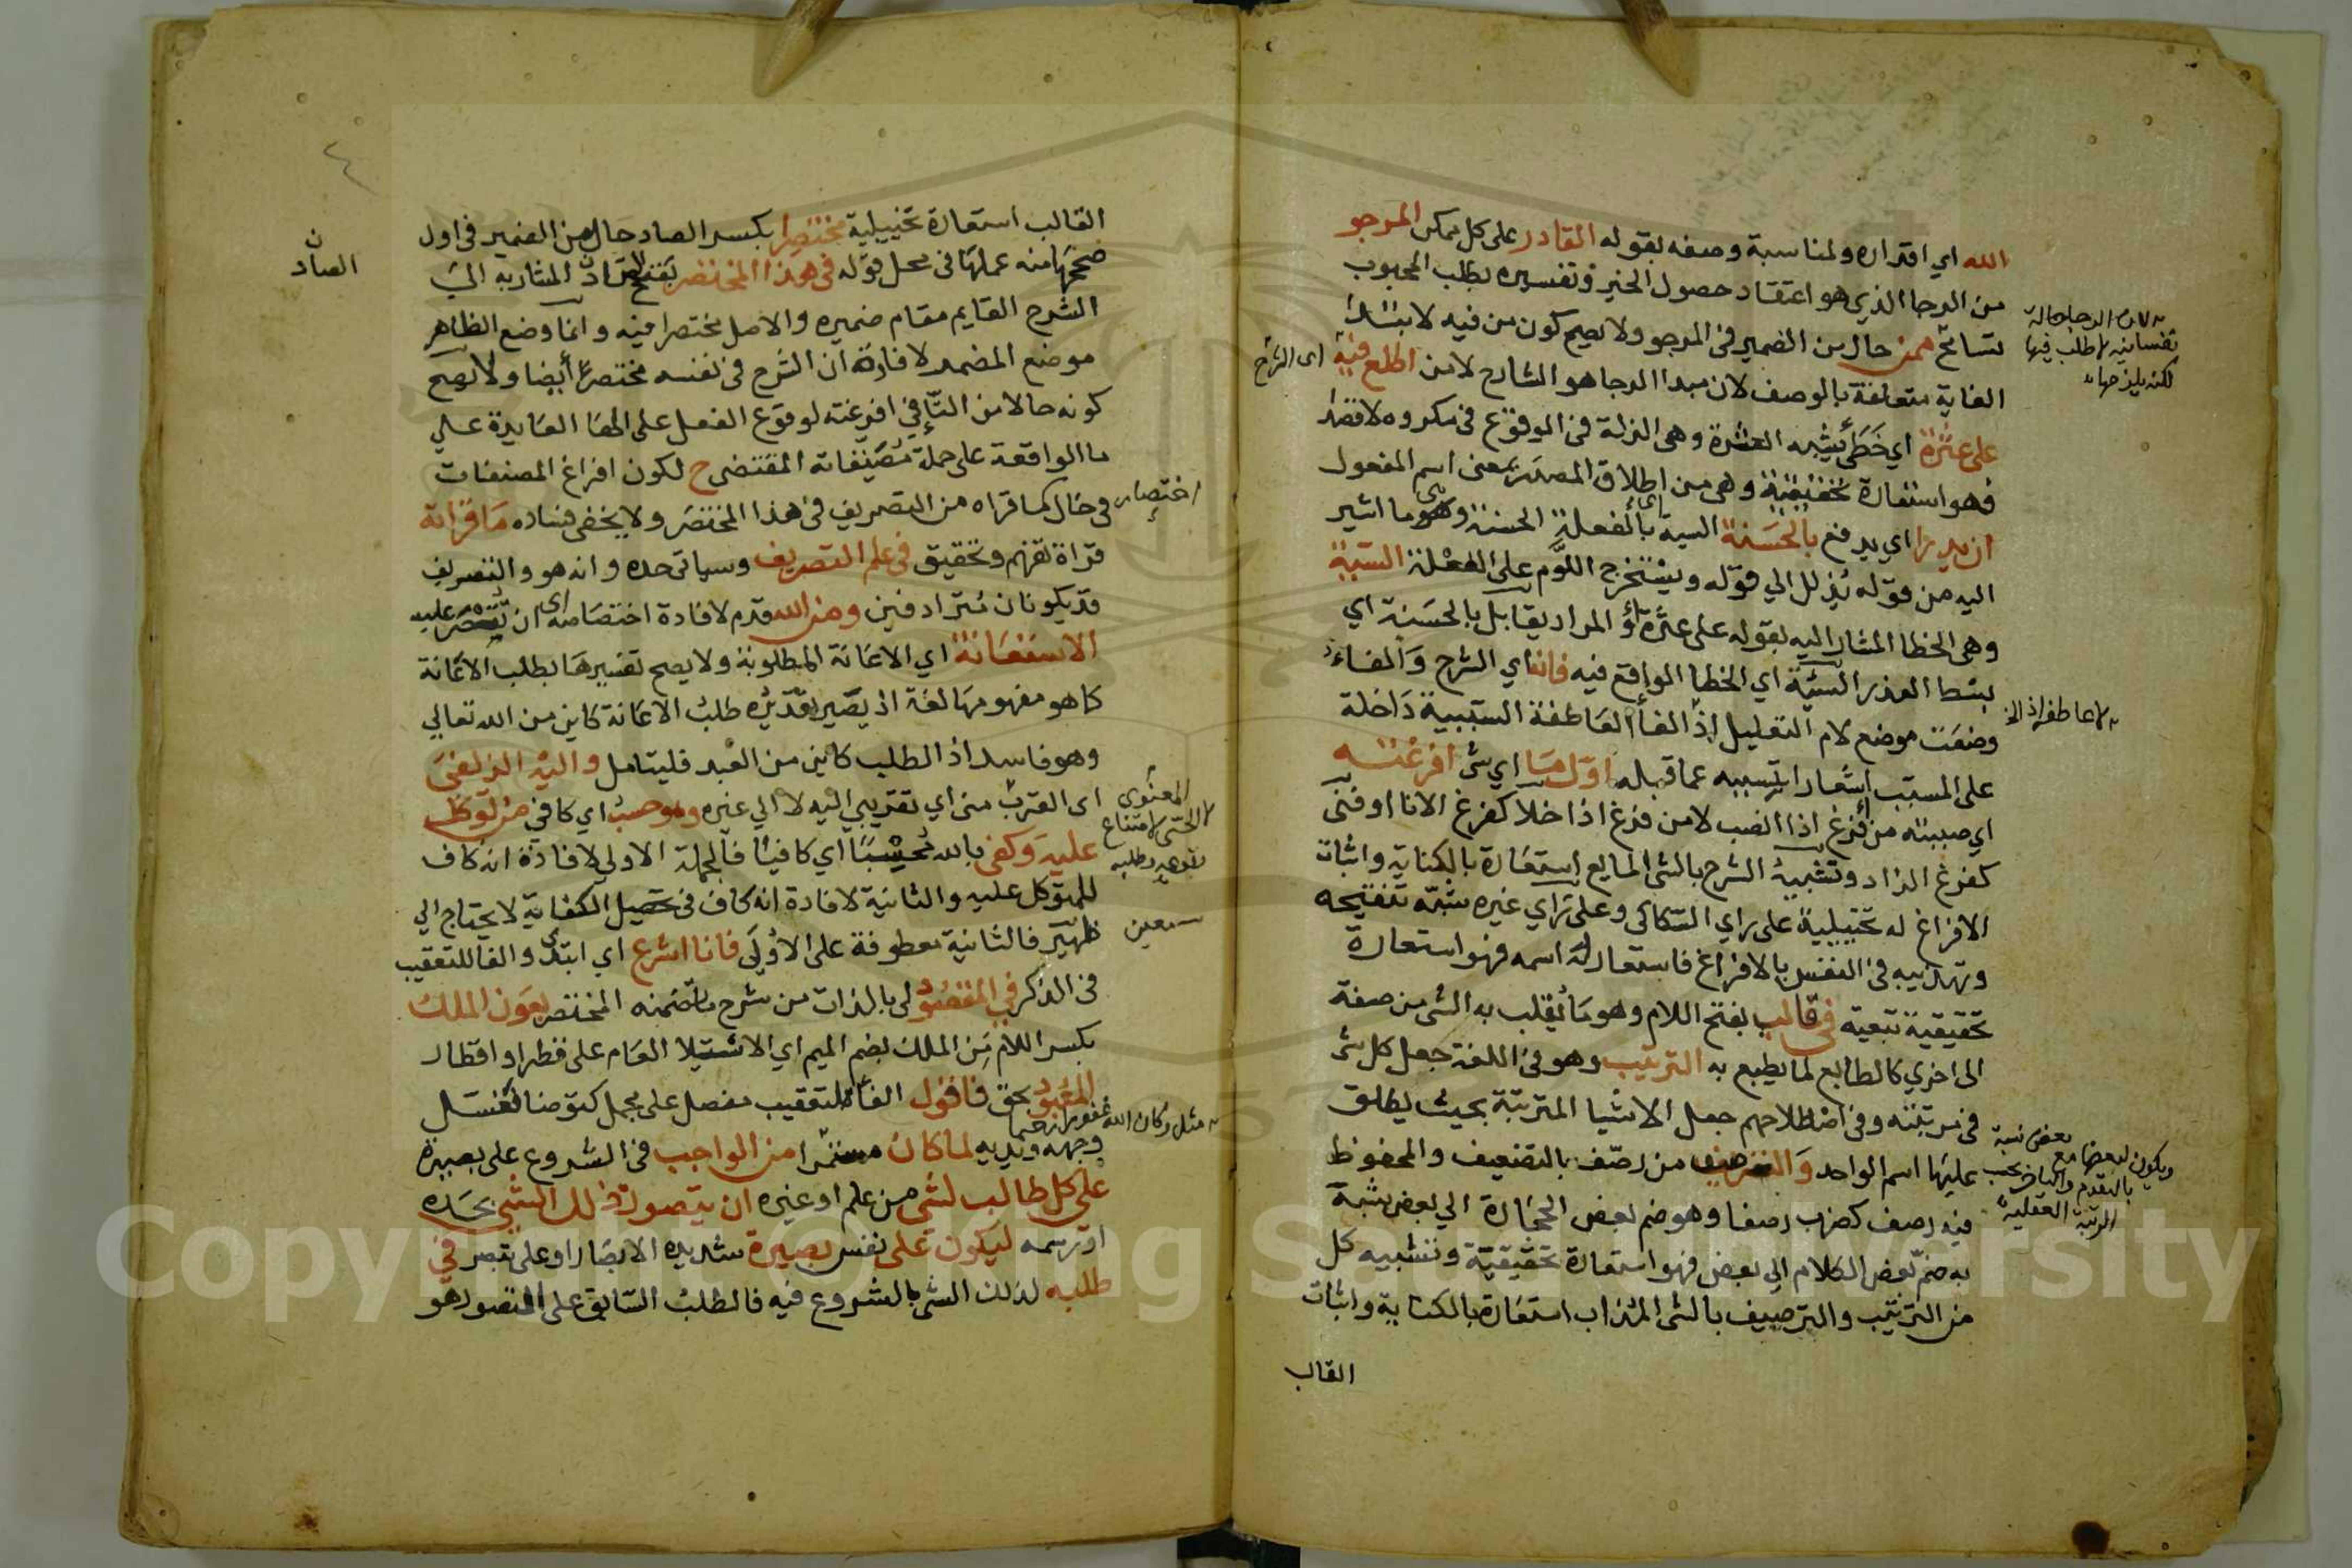 الله اي اقتداره ولمناسبة وصفه بقوله القادر على كل ممكن المرجو
من الرجا الذي هو اعتقاد حصول الخير وتفسيره بطلب المحبوب
تسامح ممن حال من الضمير في المرجو ولا يصح كون من فيه لابتداء
الغاية متعلقة بالوصف لان مبدا الرجا هو الشارح لا من اطلع فيه اى الشرح
على عثرة اي خطأ يشبه العثرة وهى الزلة في الوقوع في مكروه لاقتضاء
فهو استعارة تحقيقية وهى من اطلاق المصدر بمعنى اسم المفعول
ان يدرا اي يدفع بالحسنة السية بالفعلة الحسنة وهى ما اشير
اليه من قوله يذلل الي قوله ويستخرج اللوم على الفعلة السيئة
وهى الخطا المشار اليه بقوله على عثرة او المراد يقابل بالحسنة اي
بسط العذر السيئة اي الخطا الواقع فيه فانه اي الشرح والفاء
وضعت موضع لام التعليل اذ الفا العاطفة السببية داخلة
على المسبب اشعارا بتسببه عما قبله اول ما اي شى افرغته
اي صببته من فرغ اذا انصب لا من فرغ اذا خلا كفرغ الانا او فنى
كفرغ الزاد وتشبيه الشرح بالشى المايع استعارة بالكناية واثبات
الافراغ له تخييلية على راي السكاكى وعلى راي غيره شبه تنقيحه
وتهذيبه في النفس بالافراغ فاستعار له اسمه فهو استعارة
تحقيقية تبعية في قالب بفتح اللام وهو ما يقلب به الشى من صفة
الى اخري كالطابع لما يطبع به الترتيب وهو في اللغة جعل كل شى
في مرتبته وفي اصطلاحهم جعل الاشيا المترتبة بحيث يطلق
عليها اسم الواحد والترصيف من رصف بالتضعيف والمحفوظ
فيه رصف كضرب رصفا وهو ضم بعض الحجارة الي بعض شبه
به ضم بعض الكلام الي بعض فهو استعارة تحقيقية وتشبيه كل
من الترتيب والترصيف بالشى المذاب استعارة بالكناية واثبات
القالب
لان الرجا حالة
نفسانية لا طلب فيها
لكنه يلزمها
لا عاطفة اذ الخ
ويكون لبعضها مع بعض نسبة
بالتقدم والتاخر بحسب
الرتبة العقلية
القالب استعارة تخييلية مختصرا بكسر الصاد حال من الضمير في اول
صححها منه عملها في محل قوله في هذا المختصر بفتح الصاد المشار به الى
الشرح القايم مقام ضميره والاصل مختصرا فيه وانما وضع الظاهر
موضع المضمر لافادة ان الشرح في نفسه مختصرا أيضا ولا يصح
كونه حالا من التا في افرغته لوقوع الفعل على الها العايدة علي
ما الواقعة على جملة تصنيفاته المقتضى ح لكون افراغ المصنفات
في حال كما قراه من التصريف في هذا المختصر ولا يخفى فساده ما قراته
قراة تفهم وتحقيق في علم التصريف وسياتى حده وانه هو والتصريف
قد يكونان مترادفين ومن الله قدم لافادة اختصاصه اى ان تقتصر عليه
الاستعانة اي الاعانة المطلوبة ولا يصح تفسيرها بطلب الاعانة
كما هو مفهومها لغة اذ يصير تقديره طلب الاعانة كاين من الله تعالي
وهو فاسد اذ الطلب كاين من العبد فليتامل واليه الزلفى
اى القرب منى اي تقريبي اليه لا الي غيره وهو حسب اي كافي من توكل
عليه وكفى بالله محسبا اي كافيا فالجملة الاولي لافادة انه كاف
للمتوكل عليه والثانية لافادة انه كاف في تحصيل الكفاية لا يحتاج الي
ظهير فالثانية معطوفة على الاولى فانا اشرع اي ابتدى والفا للتعقيب
في الذكر في المقصود لي بالذات من شرح ما تضمنه المختصر بعون الملك
بكسر اللام من الملك بضم الميم اي الاستيلا العام على قطر او اقطار
المعبود بحق فاقول الفا للتعقيب مفصل على مجمل كتوضا فغسل
وجهه ويديه لما كان مستمرا من الواجب في الشروع على بصيرة
على كل طالب لشى من علم او غيره ان يتصور ذلك الشى بحده
او رسمه ليكون على نفس بصيرة شديدة الابصار او على تبصر في
طلبه لذلك الشى بالشروع فيه فالطلب السابق على التصور هو
ن
الصاد
اختصار
المعنوى
لا الحسى لامتناع
معين
مثل وكان الله غفورا رحيما
Copyright © King Saud University